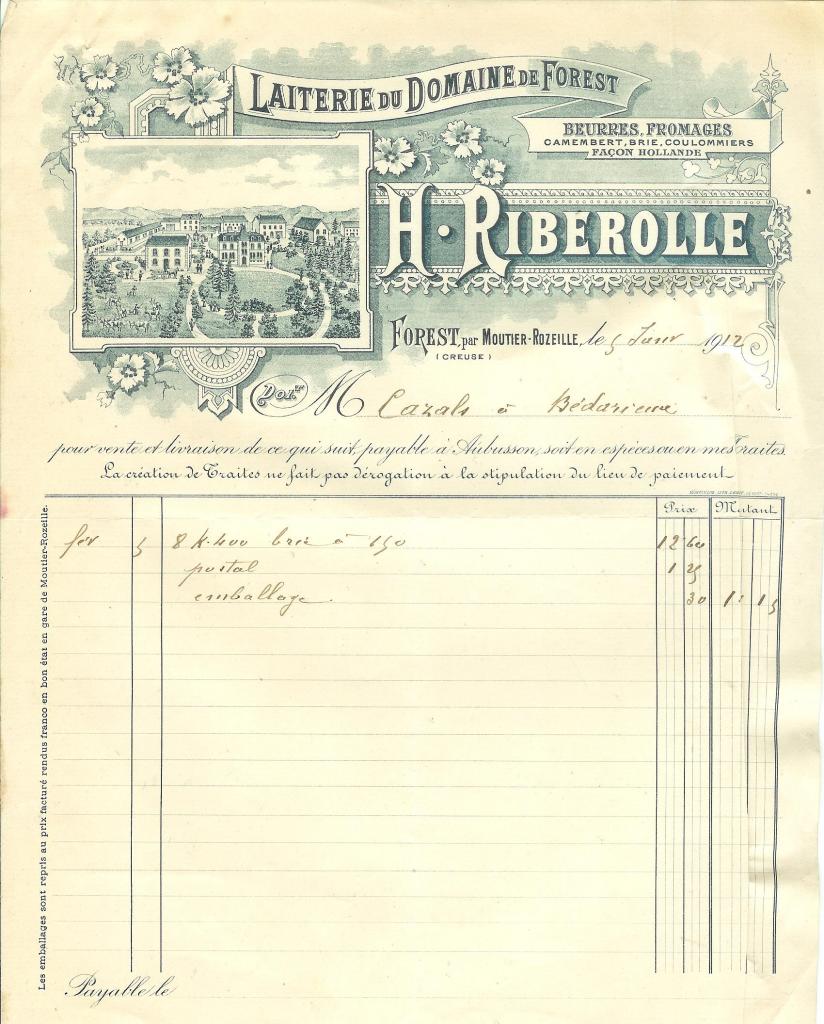 LAITERIE DU DOMAINE DE FOREST
BEURRES, FROMAGES
CAMEMBERT, BRIE, COULOMMIERS
FAÇON HOLLANDE
H. RIBEROLLE
FOREST, par MOUTIER-ROZEILLE, le 5 1912
(CREUSE)
Doit M Cazals à Bédarieux
pour vente et livraison de ce qui suit, payable à Aubusson, soit en espèces ou en mes Traites.
La création de Traites ne fait pas dérogation à la stipulation du lieu de paiement
Prix Mutant
fév 5 8 K. 400 brie à 150 12 60
postal 1 25
emballage. 30
Les emballages sont repris au prix facturé rendus franco en bon état en gare de Moutier-Rozeille.
Payable le